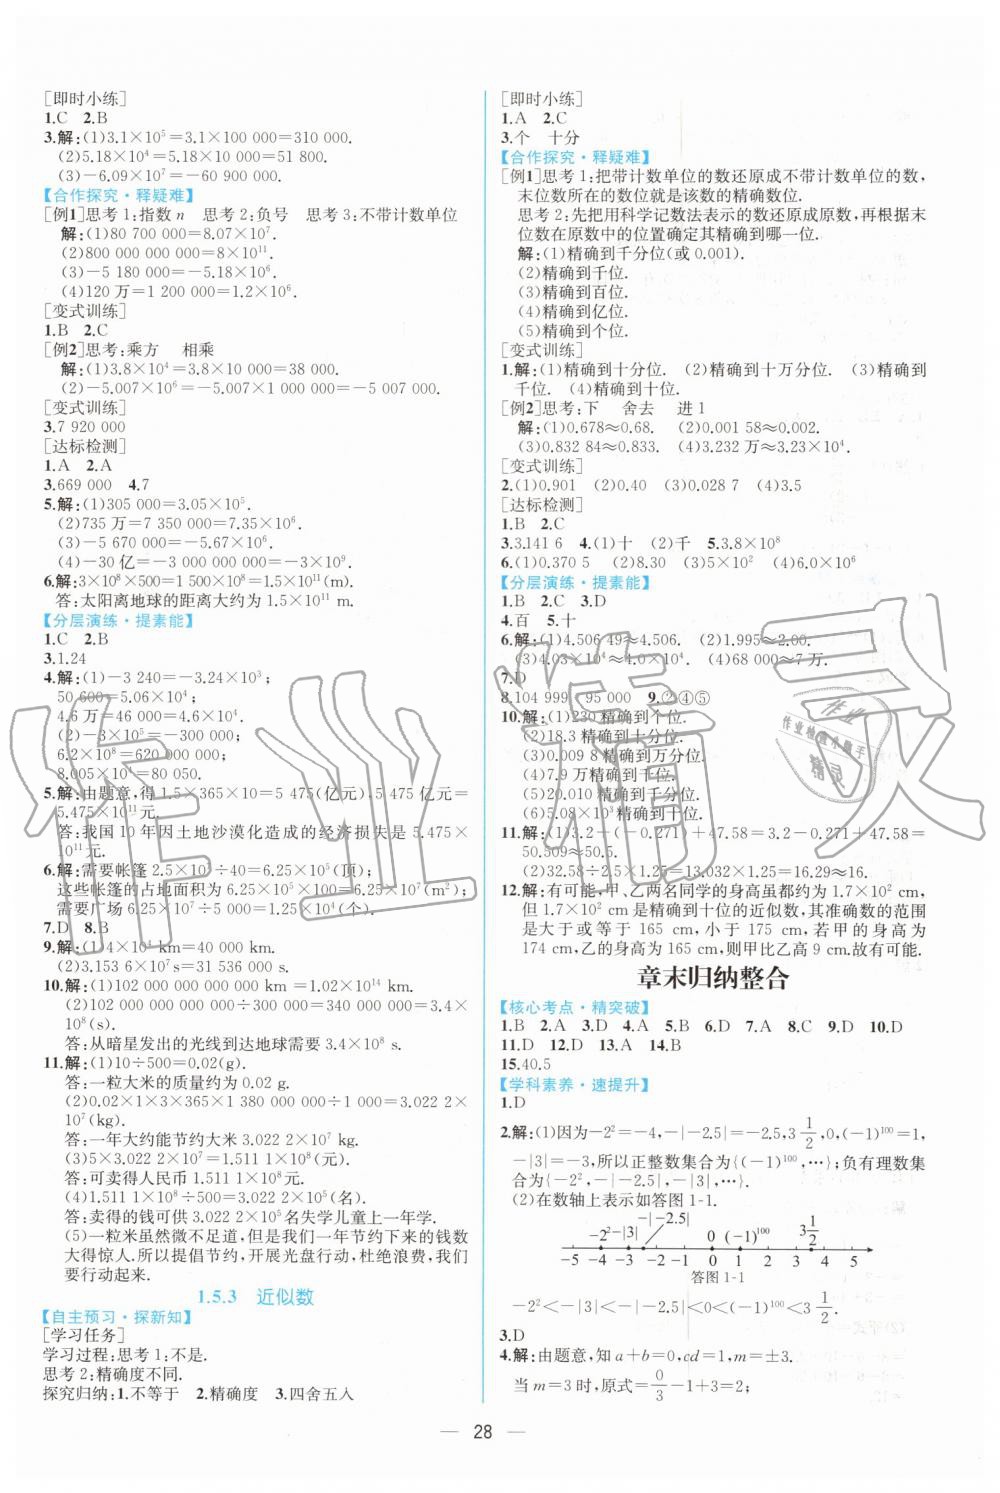 [即时小练]
1.C 2.B
3.解:(1)3.1×10⁵=3.1×100 000=310 000.
(2)5.18×10⁴=5.18×10 000=51 800.
(3)-6.09×10⁷=-60 900 000.
【合作探究·释疑难】
[例1]思考1:指数n 思考2:负号 思考3:不带计数单位
解:(1)80 700 000=8.07×10⁷.
(2)800 000 000 000=8×10¹¹.
(3)-5 180 000=-5.18×10⁶.
(4)120万=1 200 000=1.2×10⁶.
[变式训练]
1.B 2.C
[例2]思考:乘方 相乘
解:(1)3.8×10⁴=3.8×10 000=38 000.
(2)-5.007×10⁶=-5.007×1 000 000=-5 007 000.
[变式训练]
3.7 920 000
[达标检测]
1.A 2.A
3.669 000 4.7
5.解:(1)305 000=3.05×10⁵.
(2)735万=7 350 000=7.35×10⁶.
(3)-5 670 000=-5.67×10⁶.
(4)-30亿=-3 000 000 000=-3×10⁹.
6.解:3×10⁸×500=1 500×10⁸=1.5×10¹¹(m).
答:太阳离地球的距离大约为1.5×10¹¹ m.
【分层演练·提素能】
1.C 2.B
3.1.24
4.解:(1)-3 240=-3.24×10³;
50 600=5.06×10⁴;
4.6万=46 000=4.6×10⁴.
(2)-3×10⁵=-300 000;
6.2×10⁸=620 000 000;
8.005×10⁴=80 050.
5.解:由题意,得1.5×365×10=5 475(亿元),5 475亿元=
5.475×10¹¹元.
答:我国10年因土地沙漠化造成的经济损失是5.475×
10¹¹元.
6.解:需要帐篷2.5×10⁷÷40=6.25×10⁵(顶);
这些帐篷的占地面积为6.25×10⁵×100=6.25×10⁷(m²);
需要广场6.25×10⁷÷5 000=1.25×10⁴(个).
7.D 8.B
9.解:(1)4×10⁴ km=40 000 km.
(2)3.153 6×10⁷ s=31 536 000 s.
10.解:(1)102 000 000 000 000 km=1.02×10¹⁴ km.
(2)102 000 000 000 000÷300 000=340 000 000=3.4×
10⁸(s).
答:从暗星发出的光线到达地球需要3.4×10⁸ s.
11.解:(1)10÷500=0.02(g).
答:一粒大米的质量约为0.02 g.
(2)0.02×1×3×365×1 380 000 000÷1 000=3.022 2×
10⁷(kg).
答:一年大约能节约大米3.022 2×10⁷ kg.
(3)5×3.022 2×10⁷=1.511 1×10⁸(元).
答:可卖得人民币1.511 1×10⁸元.
(4)1.511 1×10⁸÷500=3.022 2×10⁵(名).
答:卖得的钱可供3.022 2×10⁵名失学儿童上一年学.
(5)一粒米虽然微不足道,但是我们一年节约下来的钱数
大得惊人.所以提倡节约,开展光盘行动,杜绝浪费,我们
要行动起来.
1.5.3 近似数
【自主预习·探新知】
[学习任务]
学习过程:思考1:不是.
思考2:精确度不同.
探究归纳:1.不等于 2.精确度 3.四舍五入
[即时小练]
1.A 2.C
3.个 十分
【合作探究·释疑难】
[例1]思考1:把带计数单位的数还原成不带计数单位的数,
末位数所在的数位就是该数的精确数位.
思考2:先把用科学记数法表示的数还原成原数,再根据末
位数在原数中的位置确定其精确到哪一位.
解:(1)精确到千分位(或0.001).
(2)精确到千位.
(3)精确到百位.
(4)精确到亿位.
(5)精确到个位.
[变式训练]
1.解:(1)精确到十分位. (2)精确到十万分位. (3)精确到
千位. (4)精确到十位.
[例2]思考:下 舍去 进1
解:(1)0.678≈0.68. (2)0.001 58≈0.002.
(3)0.832 84≈0.833. (4)3.232万≈3.23×10⁴.
[变式训练]
2.(1)0.901 (2)0.40 (3)0.028 7 (4)3.5
[达标检测]
1.B 2.C
3.3.141 6 4.(1)十 (2)千 5.3.8×10⁸
6.(1)0.370 5 (2)8.30 (3)5×10² (4)6.0×10⁶
【分层演练·提素能】
1.B 2.C 3.D
4.百 5.十
6.解:(1)4.506 49≈4.506. (2)1.995≈2.00.
(3)4.03×10⁴≈4.0×10⁴. (4)68 000≈7万.
7.D
8.104 999 95 000 9.②④⑤
10.解:(1)230精确到个位.
(2)18.3精确到十分位.
(3)0.009 8精确到万分位.
(4)7.9万精确到千位.
(5)20.010精确到千分位.
(6)5.08×10³精确到十位.
11.解:(1)3.2-(-0.271)+47.58=3.2+0.271+47.58=
50.509≈50.5.
(2)32.58÷2.5×1.25=13.032×1.25=16.29≈16.
12.解:有可能,甲、乙两名同学的身高虽都约为1.7×10² cm,
但1.7×10² cm是精确到十位的近似数,其准确数的范围
是大于或等于165 cm,小于175 cm,若甲的身高为
174 cm,乙的身高为165 cm,则甲比乙高9 cm.故有可能.
章末归纳整合
【核心考点·精突破】
1.B 2.A 3.D 4.A 5.B 6.D 7.A 8.C 9.D 10.D
11.D 12.D 13.A 14.B
15.40.5
【学科素养·速提升】
1.D
2.解:(1)因为-2²=-4,-|-2.5|=-2.5,3 1/2,0,(-1)¹⁰⁰=1,
-|3|=-3,所以正整数集合为{(-1)¹⁰⁰,…};负有理数集
合为{-2²,-|-2.5|,-|3|,…}.
(2)在数轴上表示如答图1-1.
-|-2.5|
-2² -|3| 0 (-1)¹⁰⁰ 3 1/2
-5 -4 -3 -2 -1 0 1 2 3 4 5
答图1-1
-2²<-|3|<-|-2.5|<0<(-1)¹⁰⁰<3 1/2.
3.D
4.解:由题意,知a+b=0,cd=1,m=±3.
当m=3时,原式=0/3-1+3=2;
28
作业精灵
作业检查小助手
精灵